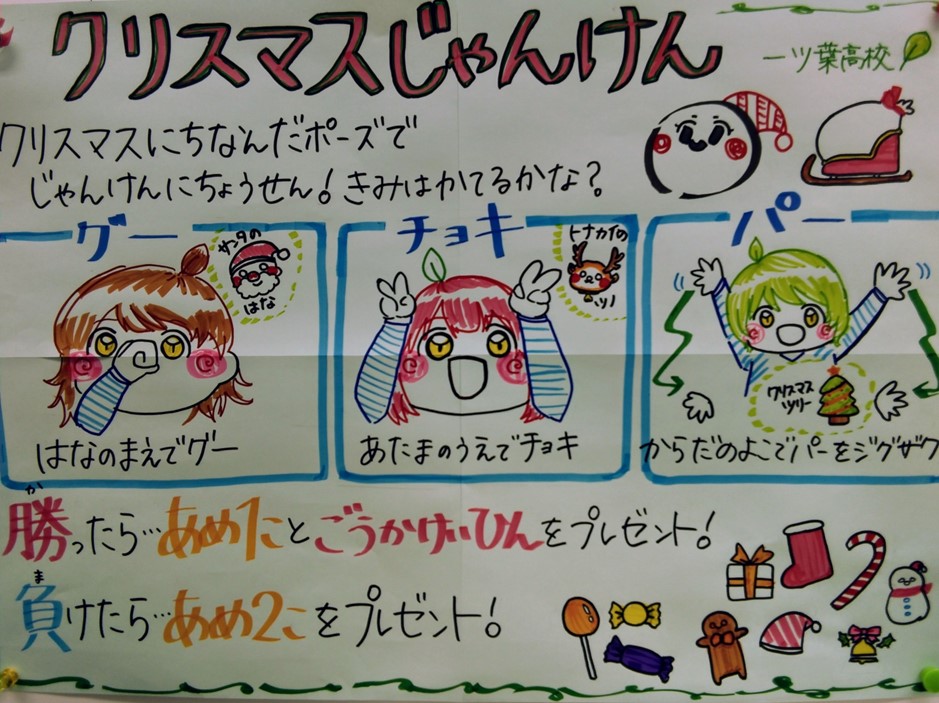 クリスマスじゃんけん
一ツ葉高校
クリスマスにちなんだポーズで
じゃんけんにちょうせん!きみはかてるかな?
グー
サンタの
はな
はなのまえでグー
チョキ
トナカイの
ツノ
あたまのうえでチョキ
パー
クリスマス
ツリー
からだのよこでパーをジグザク
か
勝ったら…あめ1ことごうかけいひんをプレゼント!
ま
負けたら…あめ2こをプレゼント!